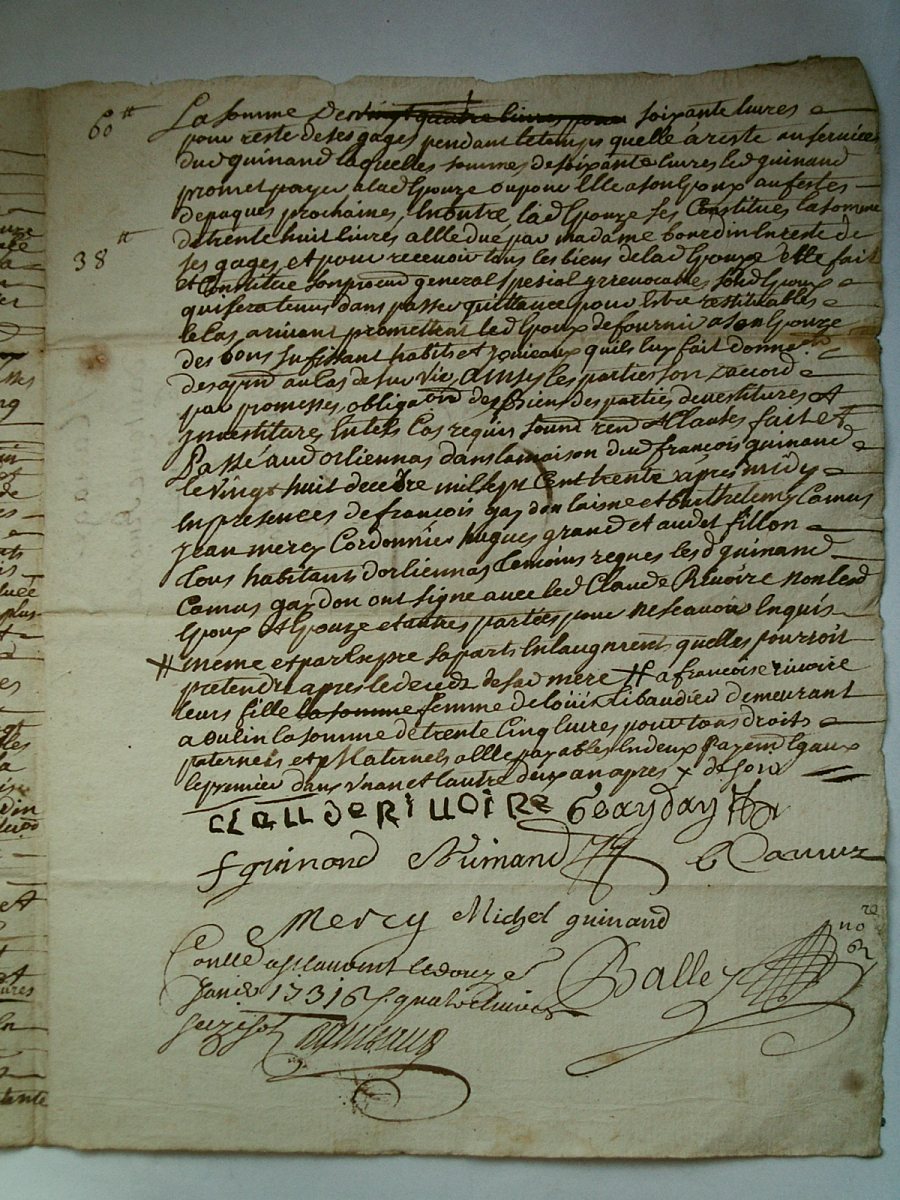 60# La somme de vingt quatre livres pour soixante livres
pour reste de ses gages pendant le temps quelle a resté au service
dud guinand laquelles sommes de soixante livres led guinand
promet payer a lad Epouze ou pour Elle a son Epoux au festes
de paques prochaines, En outre lad Epouze ses Constitues la somme
38# de trente huit livres a Elle dué par madame En reste de
ses gages et pour recevoir tous les biens de lad Epouze elle fait
et Constitue son procur general spesial yrrevocable sond Epoux
qui sera tenus dans passer quittance pour Estre restituables
le Cas arivant promettant led Epoux de fournir a son Epouze
des bons sufissant habits et joiieaux quils luy fait donne
de sa vie, ainsy les parties son daccord
par promesses obligaon des Biens des parties de vestitures et
jnvestitures En tels Cas requis soumis ren et Clauses fait et
Passé aud orliennas dans la maison dud françois guinand
le vingt huit decebre mil sept Cent trente apres midy
En presences de françois gaydon laisne et barthelemy Camus
jean mercy Cordonnier hugues grand et audet fillon
tous habitants dorliennas temoins requis les d guinand
Camus gaydon ont signe avec led Claude Rivoire non lesd
Epoux et Epouze et autres parties pour ne scavoir Enquis
# meme et par Expre sa part En laugment quelles pourroit
pretendre apres le deced de sad mere # a francoise rivoire
leurs fille la somme femme de loüis Ribaudier demeurant
a oulin la somme de trente Cinq livres pour tous droits
paternels et Maternels a Elle payables En deux Payemt Egaux
le premier dans vnan et lautre deux an apres
claude Rivoire B Gayday
fguinand Guinand b Camus
Mercy Michel guinand
Con lle a St Laurent le douze Balley no re
janvier 1731 quatre livres
seize s